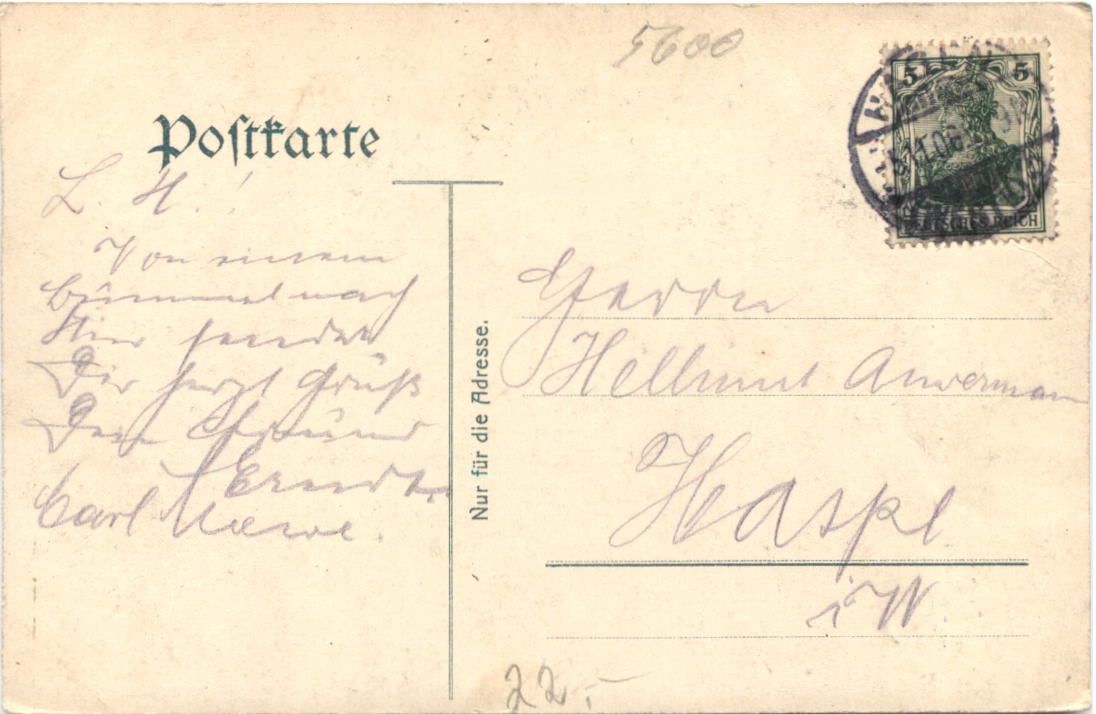 5600
Postkarte
5 5
DEUTSCHES REICH
L. H.!
Von einem
Bummel nach
hier sendet
Dir herzl Grüße
Dein Freund
Carl
Nur für die Adresse.
Herrn
Hellmut
Haspe
i W.
22.-